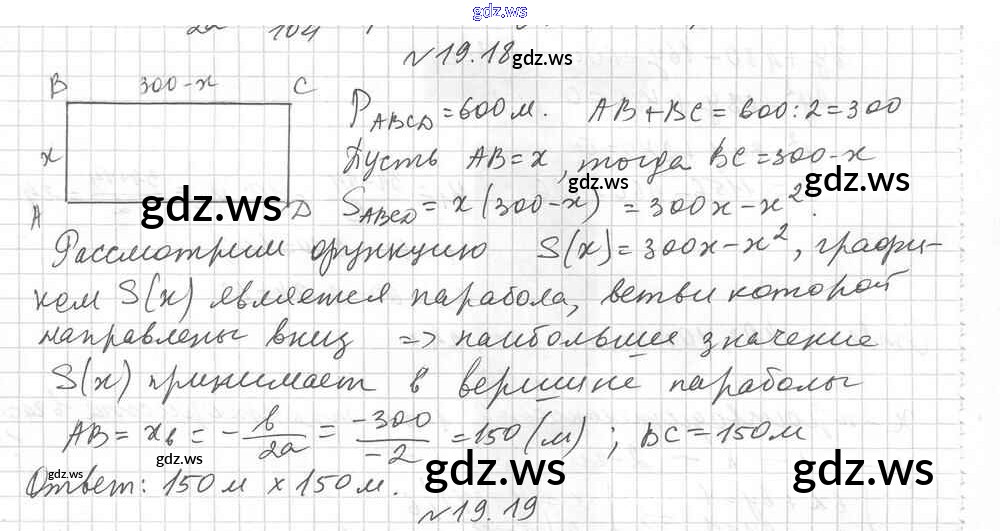 gdz.ws
№19.18
gdz.ws
B 300-x C
P_ABCD = 600 м. AB + BC = 600 : 2 = 300
x
Пусть AB = x, тогда BC = 300 - x
gdz.ws gdz.ws
A gdz.ws D S_ABCD = x(300-x) = 300x - x².
Рассмотрим функцию S(x) = 300x - x², графи-
ком S(x) является парабола, ветви которой
направлены вниз => наибольшее значение
S(x) принимает в вершине параболы
AB = x_в = -b/2a = -300/-2 = 150 (м); BC = 150 м
gdz.ws gdz.ws gdz.ws
gdz.ws
Ответ: 150 м x 150 м.
№19.19